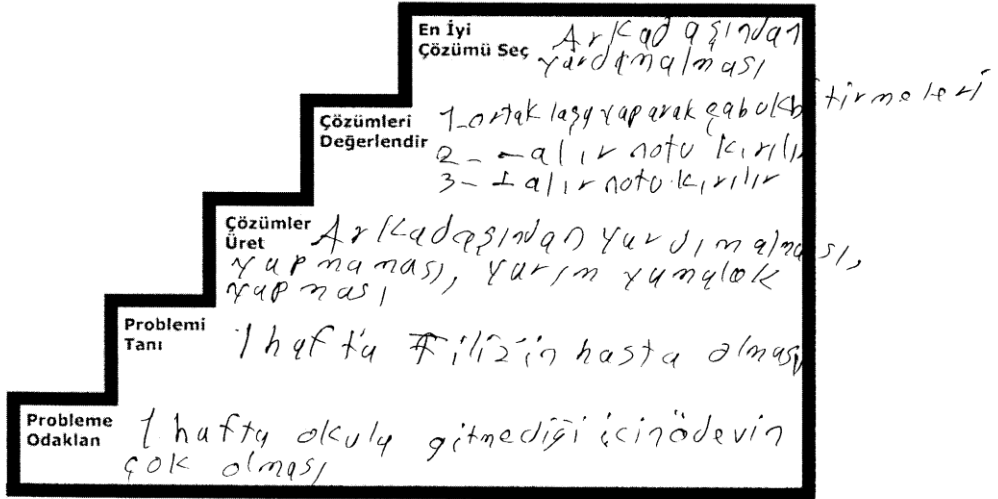 En İyi
Çözümü Seç
Arkadaşından
yardımalması
Çözümleri
Değerlendir
1-ortaklaşa yaparak çabuk bitirmeleri
2- - alır notu kırılır
3- ± alır notu kırılır
Çözümler
Üret
Arkadaşından yardım alması,
yapmaması, yarım yamalak
yapması
Problemi
Tanı
1 hafta Filiz'in hasta olması
Probleme
Odaklan
1 hafta okula gitmediği için ödevin
çok olması